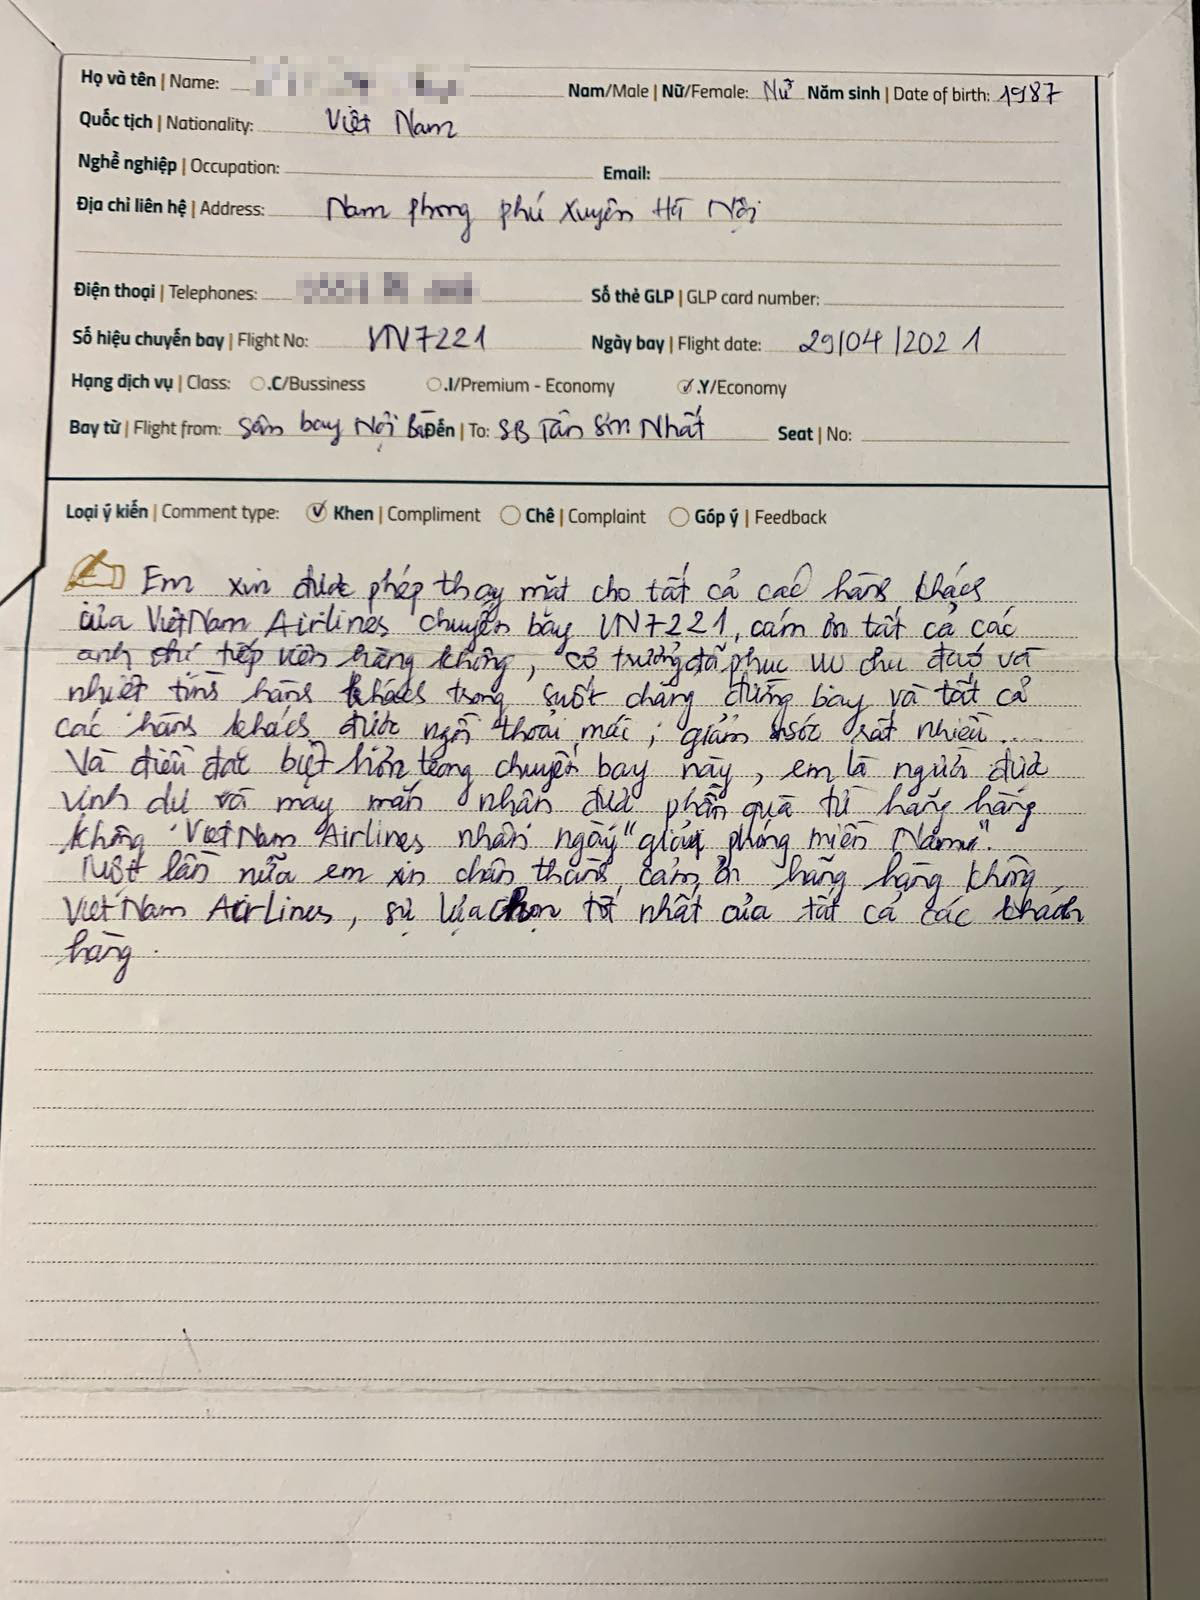 Họ và tên | Name: Nam/Male | Nữ/Female: Nữ Năm sinh | Date of birth: 1987
Quốc tịch | Nationality: Việt Nam
Nghề nghiệp | Occupation: Email:
Địa chỉ liên hệ | Address: Nam phong phú xuyên Hà Nội
Điện thoại | Telephones: Số thẻ GLP | GLP card number:
Số hiệu chuyến bay | Flight No: VN7221 Ngày bay | Flight date: 29/04/2021
Hạng dịch vụ | Class: .C/Bussiness .I/Premium - Economy .Y/Economy
Bay từ | Flight from: Sân bay Nội Bài Đến | To: SB Tân Sơn Nhất Seat | No:
Loại ý kiến | Comment type: Khen | Compliment Chê | Complaint Góp ý | Feedback
Em xin được phép thay mặt cho tất cả các hành khách
của Việt Nam Airlines chuyến bay VN7221, cám ơn tất cả các
anh chị tiếp viên hàng không, cơ trưởng đã phục vụ chu đáo và
nhiệt tình hành khách trong suốt chặng đường bay và tất cả
các hành khách được ngồi thoải mái, giảm sóc rất nhiều...
Và điều đặc biệt hơn trong chuyến bay này, em là người được
vinh dự và may mắn nhận được phần quà từ hãng hàng
không Việt Nam Airlines nhân ngày "giải phóng miền Nam".
Một lần nữa em xin chân thành cảm ơn hãng hàng không
Việt Nam Airlines, sự lựa chọn tốt nhất của tất cả các khách
hàng.